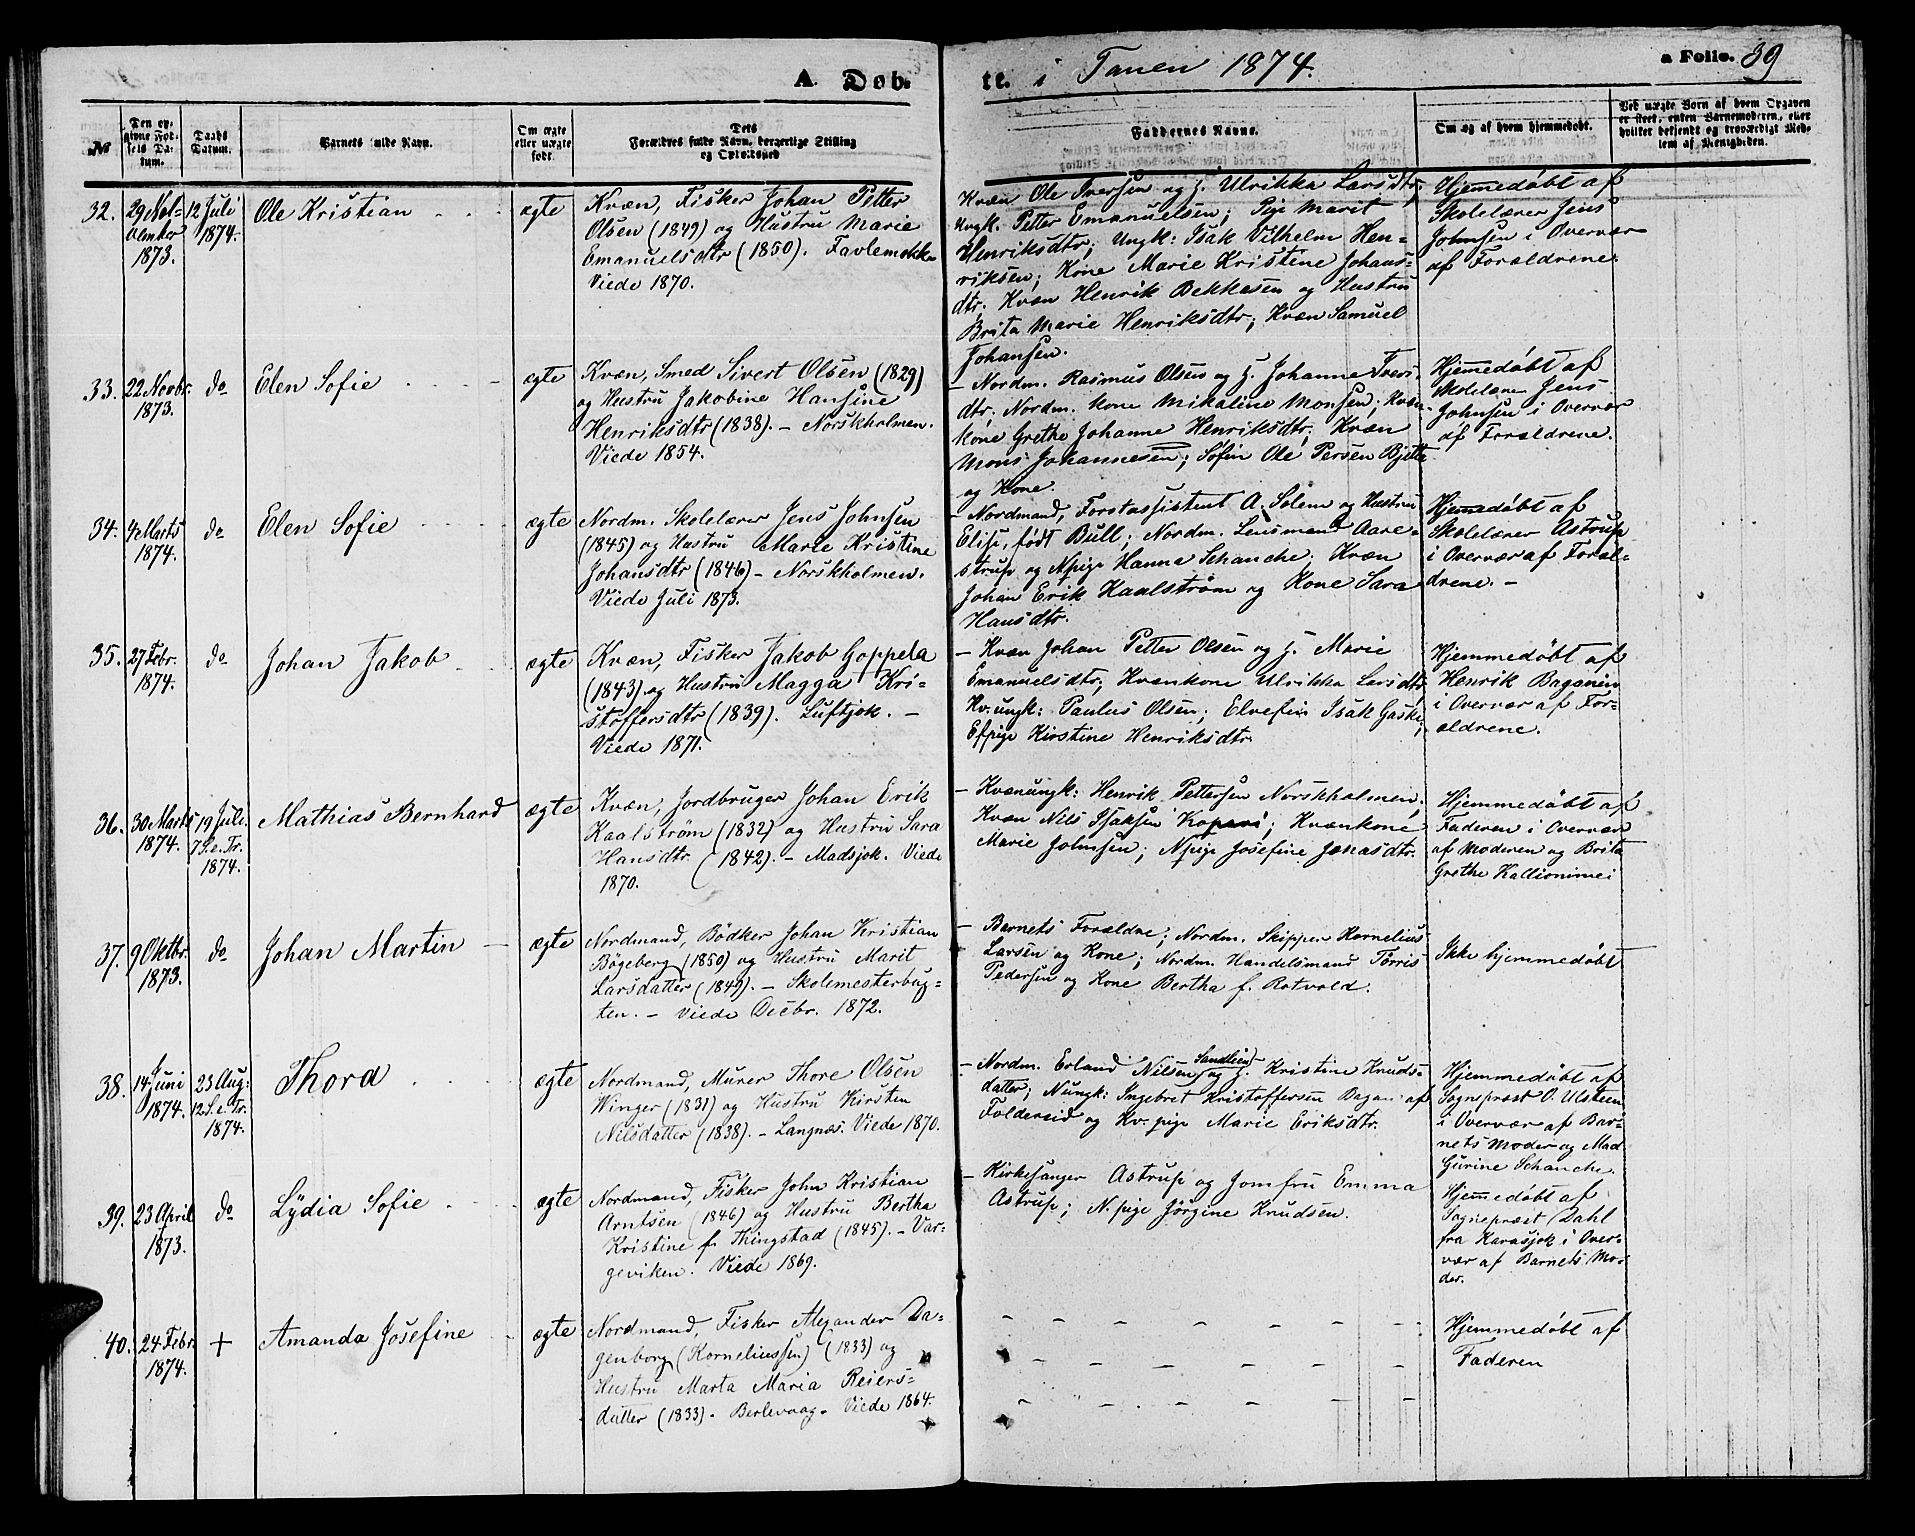 A. Døb.
te. i Tanen 1874.
a Folio. 39
№
Den opgivne Fødsels Datum.
Daabs Datum.
Barnets fulde Navn.
Om ægte eller uægte født.
Dets Forældres fulde Navn, borgerlige Stilling og Opholdssted
Faddernes Navne.
Om og af hvem hjemmedøbt.
Ved uægte Børn af hvem Opgaven er skeet, enten Barnemoderen, eller hvilket bekjendt og troværdigt Medlem af Menigheden.
32.
29 November
1873.
12 Juli
1874.
Ole Kristian
ægte
Kvæn, Fisker Johan Petter
Olsen (1849) og Hustru Marie
Emanuelsdtr (1850). Favlemokka
Viede 1870.
Kvæn Ole Iversen og H. Ulrikka Larsdtr,
Ungk. Petter Emanuelsen; Pige Marit
Henriksdtr; Ungk: Isak Vilhelm Hen-
riksen; Kone Marie Kristine Johans-
dtr. Kvæn Henrik Bekkasen og Hustru
Brita Marie Henriksdtr; Kvæn Samuel
Johansen.
Hjemmedøbt af
Skolelærer Jens
Johnsen i Overvær
af Forældrene.
33.
22 Novbr.
1873.
do
Elen Sofie
ægte
Kvæn, Smed Sivert Olsen (1829)
og Hustru Jakobine Hansine
Henriksdtr (1838). – Norskholmen.
Viede 1854.
– Nordm. Rasmus Olsen og H. Johanne Ivers-
dtr. Nordm. Kone Mikaline Monsen; Kvæn-
kone Grethe Johanne Henriksdtr; Kvæn
Mons Johannesen; Søfin Ole Persen Bjette
og Kone.
Hjemmedøbt af
Skolelærer Jens
Johnsen i Overvær
af Forældrene.
34.
4 Marts
1874.
do
Elen Sofie
ægte
Nordm. Skolelærer Jens Johnsen
(1845) og Hustru Marie Kristine
Johansdtr (1846) – Norskholmen.
Viede Juli 1873.
– Nordmand, Forstassistent A. Solem og Hustru
Elise, født Bull; Nordm. Lensmand Aare-
strup og Npige Hanna Schanche. Kvæn
Johan Erik Kaalstrøm og Kone Sara
Hansdtr.
Hjemmedøbt af
Skolelærer Astrup
i Overvær af Foræl-
drene. –
35.
27 Febr.
1874.
do
Johan Jakob
ægte
Kvæn, Fisker Jakob Goppela
(1843) og Hustru Magga Kri-
stoffersdtr (1839). Luftjok. –
Viede 1871.
– Kvæn Johan Petter Olsen og H. Marie
Emanuelsdtr; Kvænkone Ulrikka Larsdtr
Kv. ungk: Paulus Olsen; Elvefin Isak Gaski,
Efpige Kirstine Henriksdtr.
Hjemmedøbt af
Henrik Baganen
i Overvær af For-
ældrene.
36.
30 Marts
1874.
19 Juli.
7 S. e. Tr.
1874.
Mathias Bernhard
ægte
Kvæn, Jordbruger Johan Erik
Kaalstrøm (1832) og Hustru Sara
Hansdtr (1842). – Madsjok. Viede
1870.
– Kvænungk: Henrik Pettersen Norskholmen;
Kvæn Nils Isaksen Kopari; Kvænkone
Marie Johnsen; Npige Josefine Jonasdtr.
Hjemmedøbt af
Faderen i Overvær
af Moderen og Brita
Grethe Kallionimei
37.
9 Oktbr.
1873.
do
Johan Martin
ægte
Nordmand, Bødker Johan Kristian
Bøgeberg (1850) og Hustru Marit
Larsdatter (1849). – Skolemesterbug-
ten. – Viede Decbr. 1872.
– Barnets Forældre; Nordm. Skipper Kornelius
Larsen og Kone; Nordm. Handelsmand Tørris
Pedersen og Kone Bertha f. Rotvold.
Ikke hjemmedøbt
38.
14 Juni
1874.
23 Aug:
12 S. e. Tr.
1874.
Thora
ægte
Nordmand, Murer Thore Olsen
Winger (1831) og Hustru Kirsten
Nilsdatter (1838). – Langnæs. Viede 1870.
– Nordm. Erland Nilsen Sandlien og H. Kristine Knuds-
datter; Nungk: Ingebret Kristoffersen af
Foldereid og Kv. pige Marie Eriksdtr.
Hjemmedøbt af
Sognepræst O. Ulsteen
i Overvær af Bar-
nets Moder og Mad
Gurine Schanche.
39.
23 April
1873.
do
Lydia Sofie
ægte
Nordmand, Fisker John Kristian
Arntsen (1846) og Hustru Bertha
Kristine f. Thingstad (1845). – Var-
geviken. Viede 1869.
– Kirkesanger Astrup og Jomfru Emma
Astrup; N. pige Jörgine Knudsen.
Hjemmedøbt af
Sognepræst Dahl
fra Karasjok i Over-
vær af Barnets Mo-
der.
40.
24 Febr.
1874.
+
Amanda Josefine
ægte
Nordmand, Fisker Alexander Da-
genborg (Korneliussen) (1833) og
Hustru Marta Maria Reiers-
datter (1833). Berlevaag. Viede 1864.
Hjemmedøbt af
Faderen